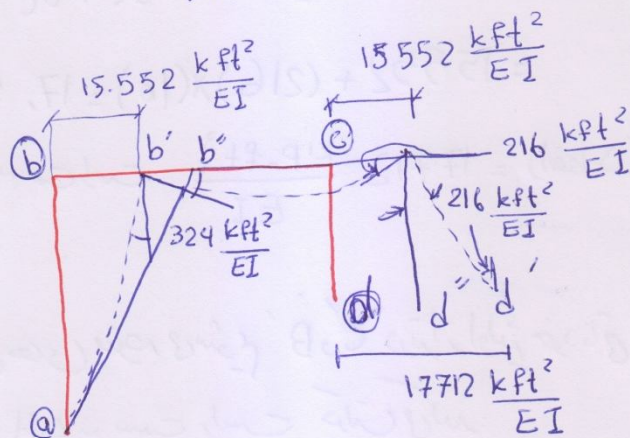 15.552 k ft²/EI
15.552 k ft²/EI
b
b'
b"
c
216 k ft²/EI
324 k ft²/EI
216 k ft²/EI
d
d"
d'
a
17712 k ft²/EI